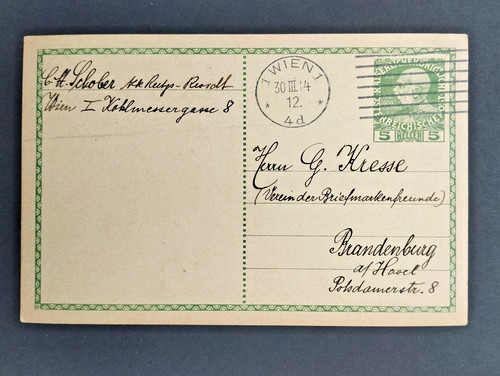 C. H. Schober k.k. Rechgs-Revsdt
Wien I Kohlmessergasse 8
1 WIEN 1
30 III 14
12.
* *
4d
KREICHISCHE
5 HELLER 5
Herrn G. Kresse
(Verein der Briefmarkenfreunde)
Brandenburg
a/Havel
Potsdamerstr. 8